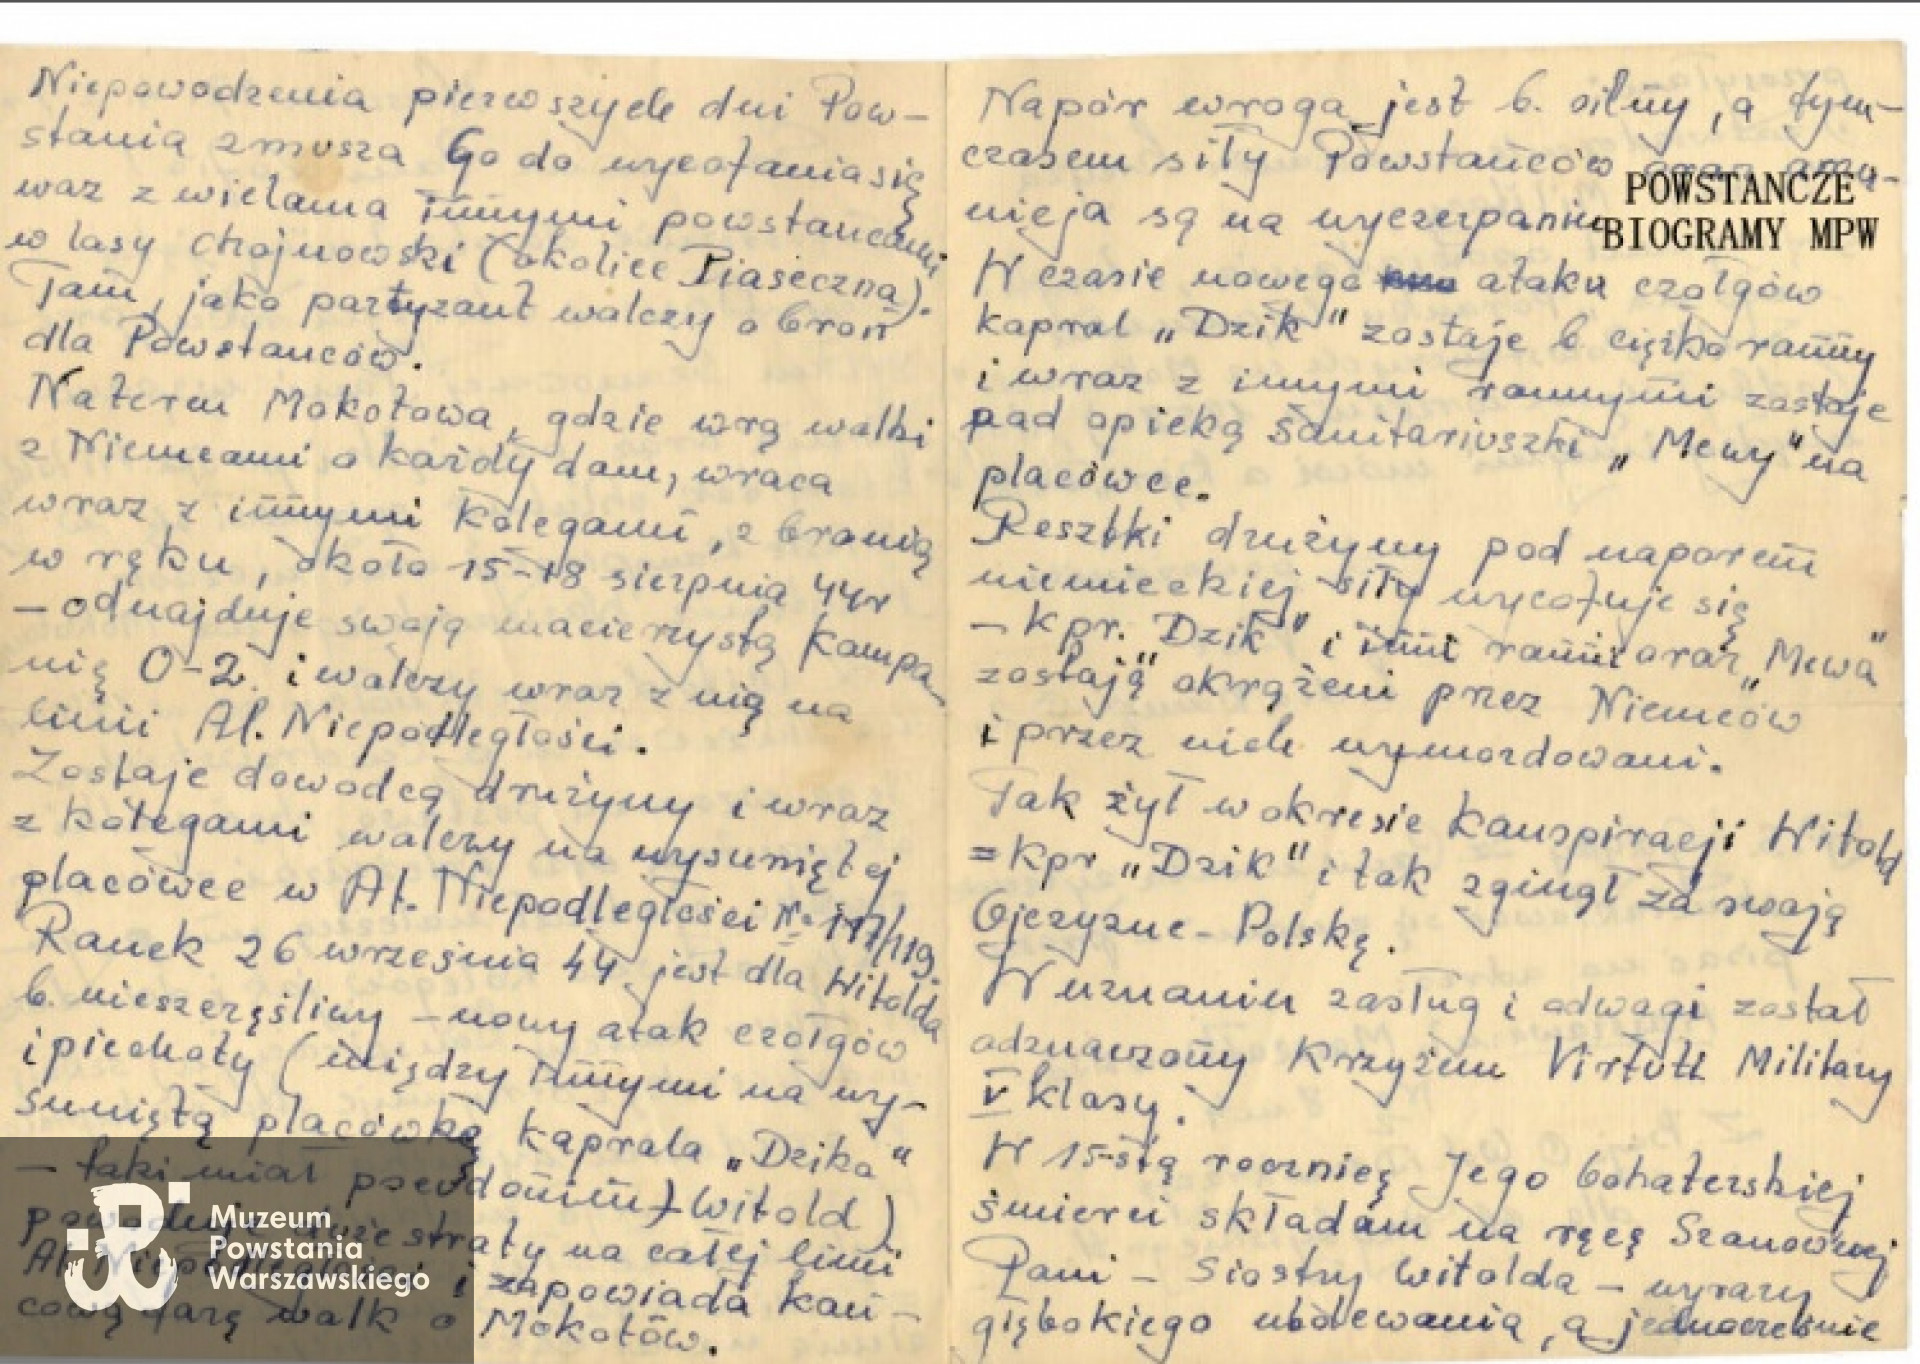 Niepowodzenia pierwszych dni Pow-
stania zmusza Go do wycofania się
wraz z wieloma innymi powstańcami
w lasy Chojnowski (okolice Piaseczna).
Tam, jako partyzant walczy o broń
dla Powstańców.
Na teren Mokotowa, gdzie wrą walki
z Niemcami o każdy dom, wraca
wraz z innymi kolegami, z bronią
w ręku, około 15-18 sierpnia 44r
- odnajduje swoją macierzystą kompa-
nię O-2. i walczy wraz z nią na
linii Al. Niepodległości.
Zostaje dowódcą drużyny i wraz
z kolegami walczy na wysuniętej
placówce w Al. Niepodległości Nr 117/119.
Ranek 26 września 44. jest dla Witolda
b. nieszczęśliwy - nowy atak czołgów
i piechoty (między innymi na wy-
suniętą placówkę kaprala „Dzika"
- taki miał pseudonim - Witold)
powoduje duże straty na całej linii
Al. Niepodległości i zapowiada koń-
cową fazę walk o Mokotów.
Napór wroga jest b. silny, a tym-
czasem siły Powstańców oraz amu-
nicja są na wyczerpaniu
W czasie nowego ataku czołgów
kapral „Dzik" zostaje b ciężko ranny
i wraz z innymi rannymi zostaje
pod opieką sanitariuszki „Mewy" na
placówce.
Resztki drużyny pod naporem
niemieckiej siły wycofuje się
- kpr. "Dzik" i inni ranni oraz „Mewa"
zostają okrążeni przez Niemców
i przez nich wymordowani.
Tak żył w okresie konspiracji Witold
= kpr „Dzik" i tak zginął za swoją
Ojczyznę - Polskę.
W uznaniu zasług i odwagi został
odznaczony Krzyżem Virtuti Military
V klasy.
W 15-stą rocznicę Jego bohaterskiej
śmierci składam na ręcę Szanownej
Pani - Siostry Witolda - wyrazy
głębokiego ubolewania, a jednocześnie
POWSTAŃCZE
BIOGRAMY MPW
Muzeum
Powstania
Warszawskiego